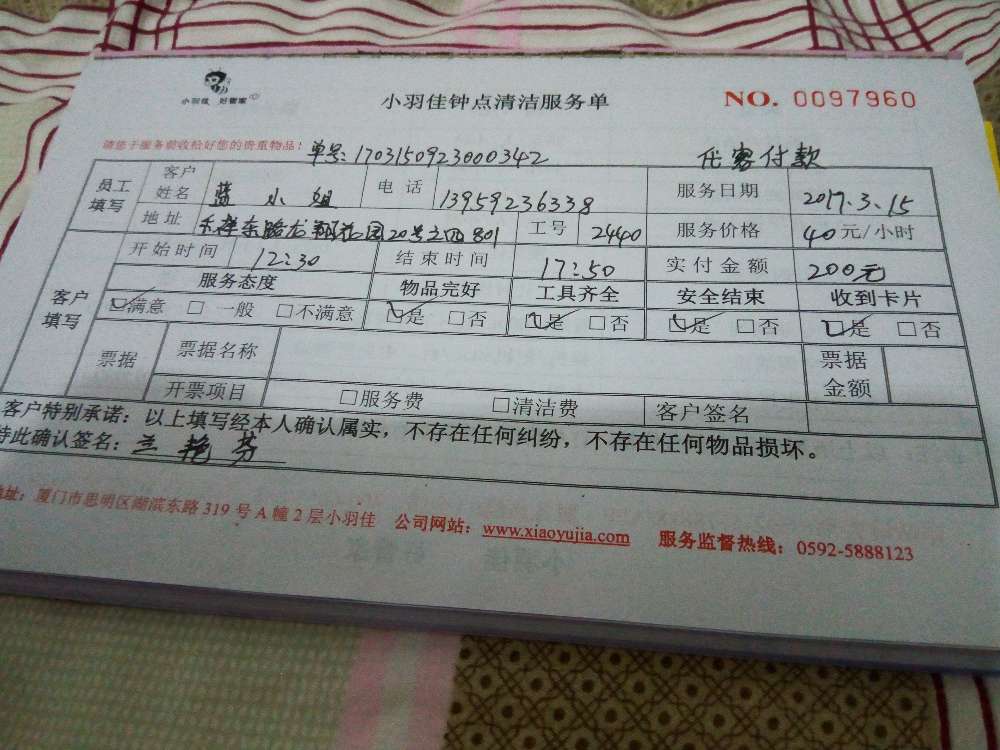 小羽佳 好管家
小羽佳钟点清洁服务单
NO. 0097960
请您于服务前收拾好您的贵重物品！
单号:1703150923000342
代客付款
员工填写
客户姓名
蓝小姐
电话
13959236338
服务日期
2017.3.15
地址
禾祥东路龙翔花园20号之四801
工号
2440
服务价格
40元/小时
客户填写
开始时间
12:30
结束时间
17:50
实付金额
200元
服务态度
物品完好
工具齐全
安全结束
收到卡片
☑满意 □一般 □不满意
☑是 □否
☑是 □否
☑是 □否
☑是 □否
票据
票据名称
票据金额
开票项目
□服务费 □清洁费
客户签名
客户特别承诺：以上填写经本人确认属实，不存在任何纠纷，不存在任何物品损坏。
特此确认签名：兰艳芬
地址：厦门市思明区湖滨东路319号A幢2层小羽佳 公司网站：www.xiaoyujia.com 服务监督热线：0592-5888123